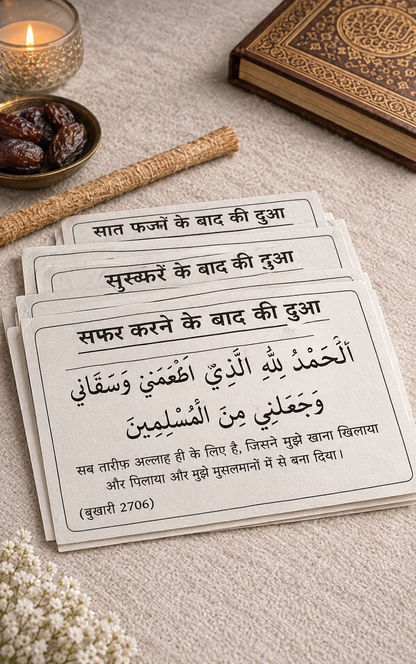 सात फज्नों के बाद की दुआ
सुस्करें के बाद की दुआ
सफर करने के बाद की दुआ
اَلْحَمْدُ لِلّٰهِ الَّذِيْ اَطْعَمَنِيْ وَسَقَانِي
وَجَعَلنِي مِنَ الْمُسْلِمِينَ
सब तारीफ अल्लाह ही के लिए है, जिसने मुझे खाना खिलाया
और पिलाया और मुझे मुसलमानों में से बना दिया।
(बुखारी 2706)